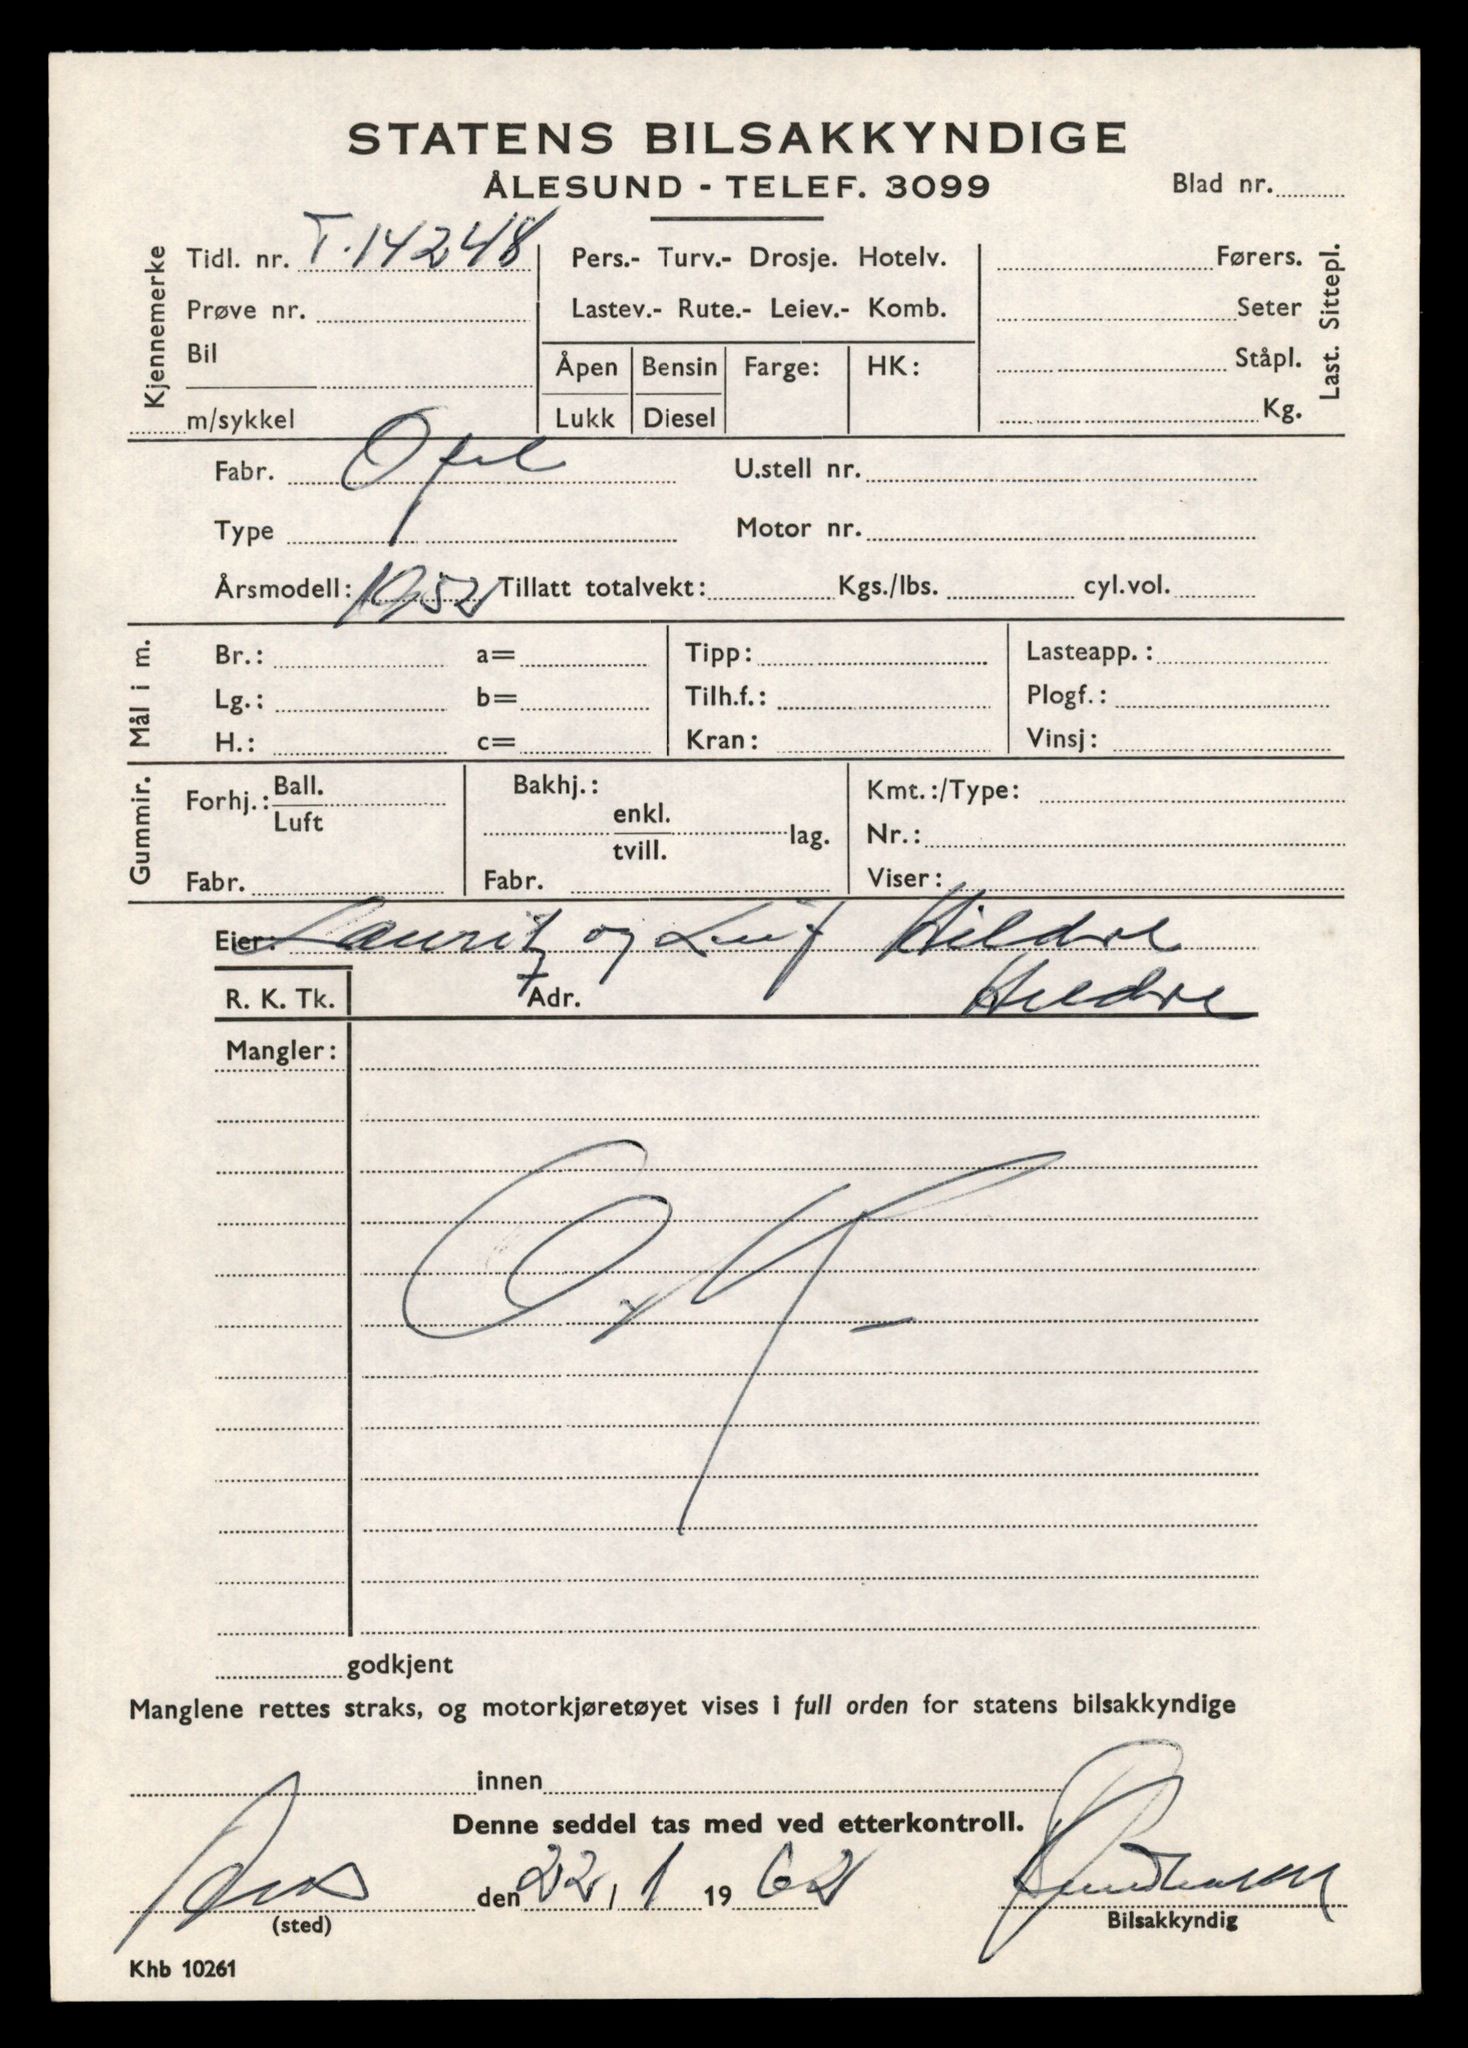 STATENS BILSAKKYNDIGE
ÅLESUND - TELEF. 3099
Blad nr.
Kjennemerke
Tidl. nr. T-14248
Prøve nr.
Bil
m/sykkel
Pers.- Turv.- Drosje. Hotelv.
Lastev.- Rute.- Leiev.- Komb.
Åpen
Lukk
Bensin
Diesel
Farge:
HK:
Førers.
Seter
Ståpl.
Kg.
Last. Sittepl.
Fabr. Opel
U.stell nr.
Type
Motor nr.
Årsmodell: 1952 Tillatt totalvekt: Kgs./lbs. cyl.vol.
Mål i m.
Br.: a= Tipp: Lasteapp.:
Lg.: b= Tilh.f.: Plogf.:
H.: c= Kran: Vinsj:
Gummir.
Forhj.: Ball.
Luft
Fabr.
Bakhj.:
enkl.
tvill. lag.
Fabr.
Kmt.:/Type:
Nr.:
Viser:
Eier: Lauritz og Leif Hildre
R. K. Tk. Adr. Hildre
Mangler:
O.K.
godkjent
Manglene rettes straks, og motorkjøretøyet vises i full orden for statens bilsakkyndige
innen
Denne seddel tas med ved etterkontroll.
den 22. 1 1962
(sted)
Bilsakkyndig
Khb 10261